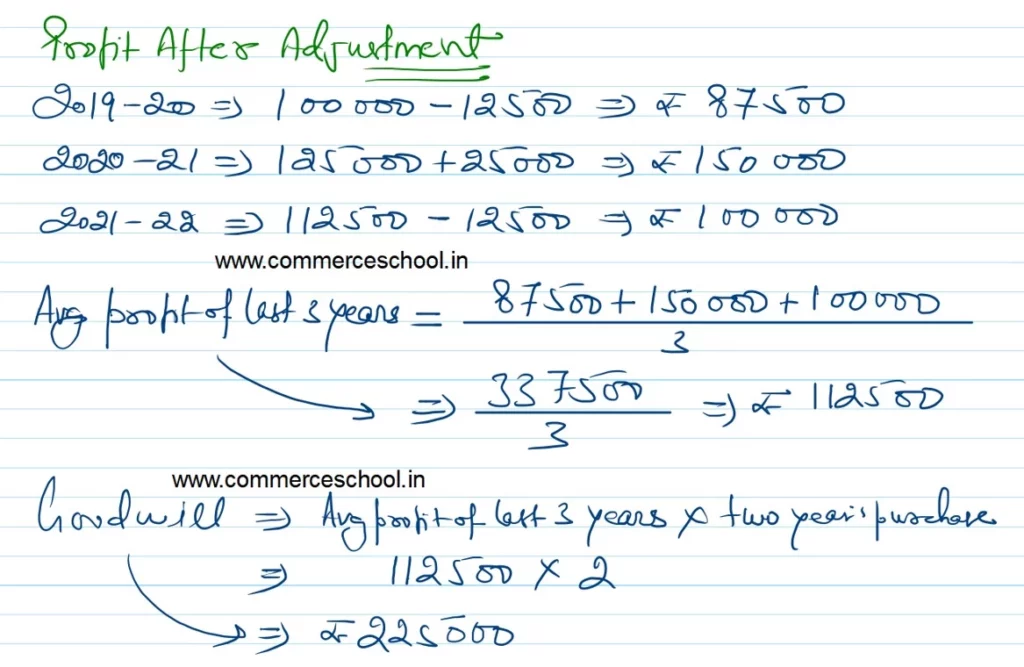 Profit After Adjustment
2019-20 ⇒ 100000 - 12500 ⇒ ₹ 87500
2020-21 ⇒ 125000 + 25000 ⇒ ₹ 150000
2021-22 ⇒ 112500 - 12500 ⇒ ₹ 100000
www.commerceschool.in
Avg profit of last 3 years = 87500 + 150000 + 100000
3
⇒ 337500 ⇒ ₹ 112500
3
www.commerceschool.in
Goodwill ⇒ Avg profit of last 3 years × two year's purchase
⇒ 112500 × 2
⇒ ₹ 225000